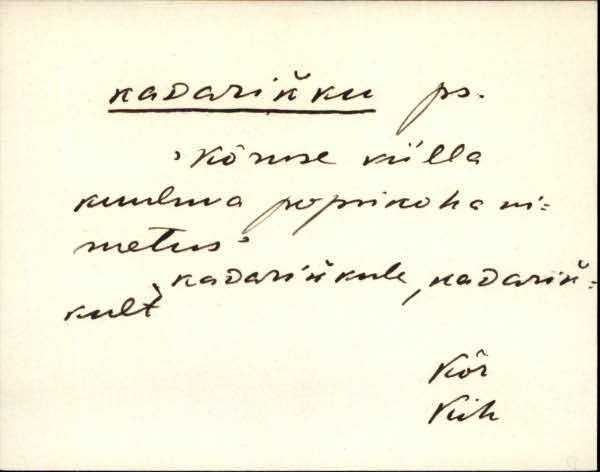 kadariňku ps.
‚Kõruse külla
kuuluva popsikoha ni-
metus‘
kadariňkule, kadariň-
kul̀t
Kõr
Kih